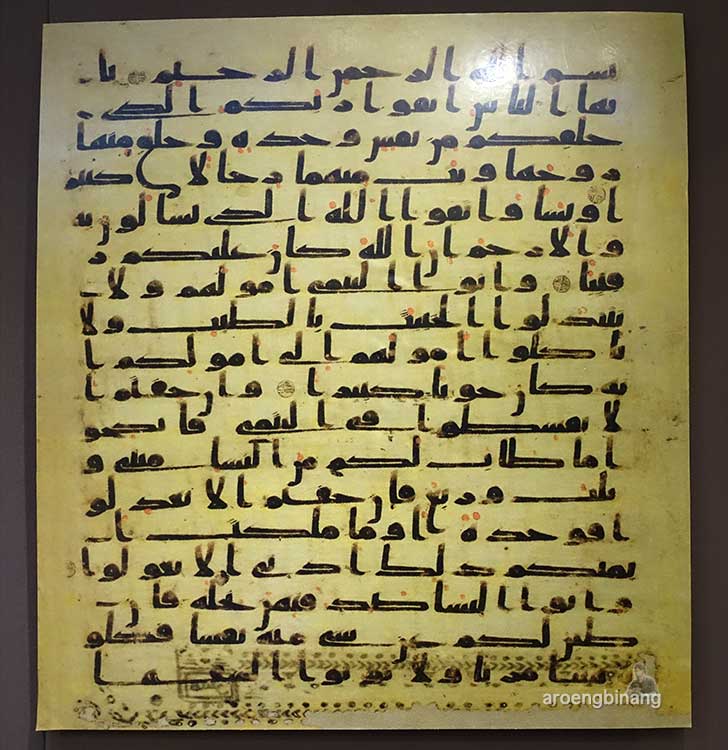 بسم الله الرحمن الرحيم يا
يها الناس اتقوا ربكم الذي
خلقكم من نفس وحدة وخلق منها
زوجها وبث منهما رجالا كثير
ا ونسا واتقوا الله الذي تسالون به
والارحم ان الله كان عليكم ر
قيبا واتوا اليتمى امولهم ولا
تتبدلوا الخبيث بالطيب ولا
تاكلوا امولهم الى امولكم ا
نه كان حوبا كبيرا وان خفتم ا
لا تقسطوا في اليتمى فانكحو
ا ما طاب لكم من النسا مثنى و
ثلث وربع فان خفتم الا تعدلو
ا فوحدة او ما ملكت ا
يمنكم ذلك ادنى الا تعولوا
واتوا النسا صدقتهن نحلة فان
طبن لكم عن شي منه نفسا فكلو
ه هنيا مريا ولا توتوا السفها
aroengbinang